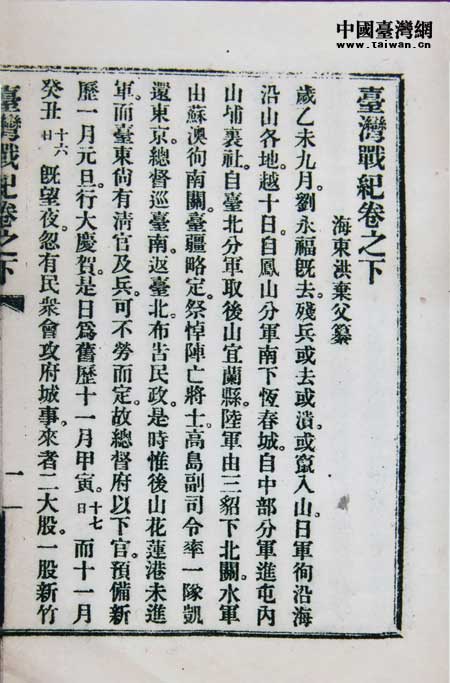 中國臺灣網
www.taiwan.cn
臺灣戰紀卷之下
海東洪棄父纂
歲乙未九月。劉永福既去。殘兵或去。或潰。或竄入山。日軍徇沿海
沿山各地。越十日。自鳳山分軍南下恆春城。自中部分軍進屯內
山埔裏社。自臺北分軍取後山宜蘭縣。陸軍由三貂下北關。水軍
由蘇澳徇南關。臺疆略定。祭悼陣亡將士。高島副司令率一隊凱
還東京。總督巡臺南。返臺北。布告民政。是時惟後山花蓮港未進
軍。而臺東尚有清官及兵。可不勞而定。故總督府以下官。預備新
歷一月元旦。行大慶賀。是日為舊歷十一月甲寅。十七日而十一月
癸丑十六日既望夜。忽有民衆會攻府城事。來者二大股。一股新竹
臺灣戰紀卷之下
一